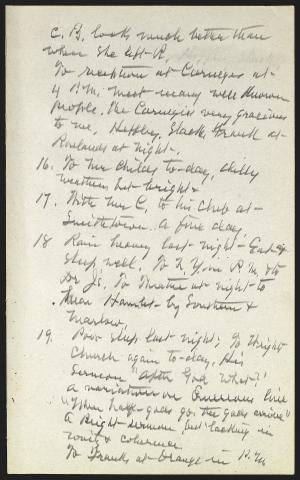 C. B. looks much better than
when she left R.
To reception at Carnegies at
4 P.M. Meet many well known
people. The Carnegies very gracious
to me. Heppley, Slack, Frank at
Rowlands at night.
16. To Mr Childs to-day, chilly
weather but bright.
17. With Mr C. to his Club at
Smithtown. A fine day,
18 Rain heavy last night -
sleep well. To N.Y. in P.M. to
Dr J's. To theatre at night to
hear Hamlet by Southern &
Marlow.
19. Poor sleep last night; To Wright
church again to-day, His
sermon "After God What?"
a variation on Emersons line
"When half-gods go, the gods arrive"
A bright sermon but lacking in
unity & coherence.
To Franks at Orange in P.M